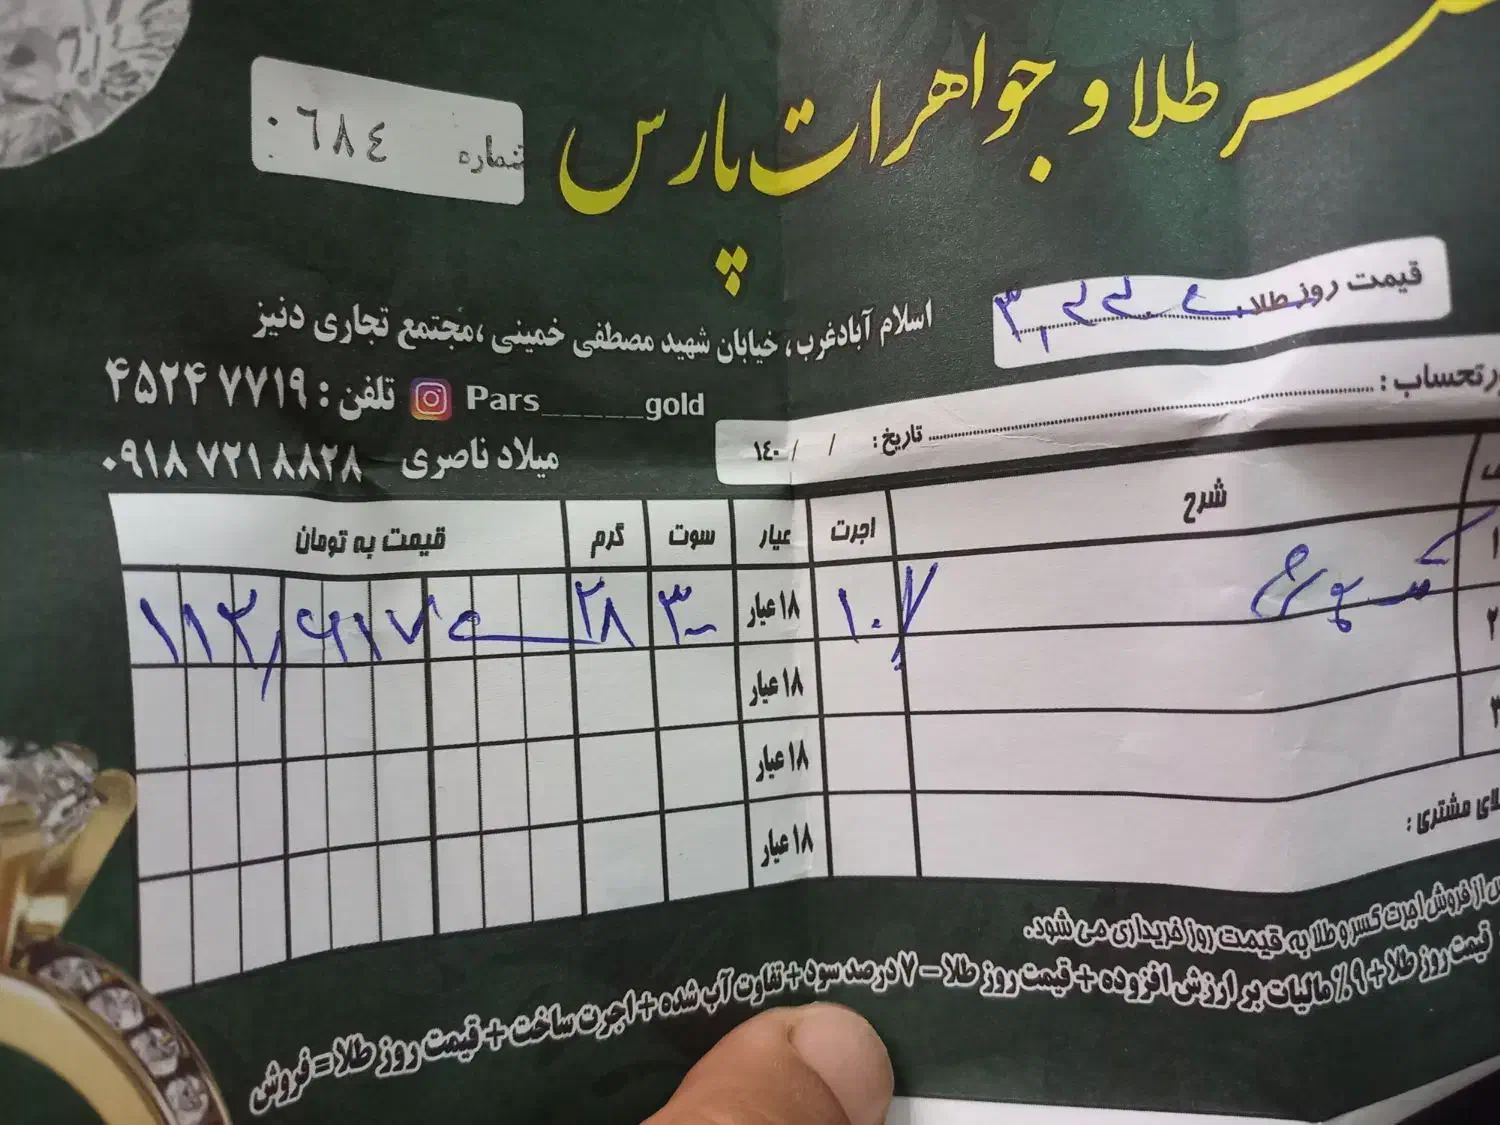 سر طلا و جواهرات پارس
شماره ۰٦٨٤
قیمت روز طلا:
اسلام آبادغرب، خیابان شهید مصطفی خمینی، مجتمع تجاری دنیز
تلفن: ۴۵۲۴۷۷۱۹ Pars_____gold
میلاد ناصری ۰۹۱۸۷۲۱۸۸۲۸
تاریخ: / / ۱٤۰
شرح اجرت عیار سوت گرم قیمت به تومان
۱ ۱۰٪ ۱۸ عیار ۳۰۰ ۲۸
۲ ۱۸ عیار
۳ ۱۸ عیار
۱۸ عیار
مشتری:
از فروش اجرت کسر و طلا به قیمت روز خریداری می شود.
قیمت روز طلا + ۹٪ مالیات بر ارزش افزوده + قیمت روز طلا - ۷ درصد سود + تفاوت آب شده + اجرت ساخت + قیمت روز طلا = فروش